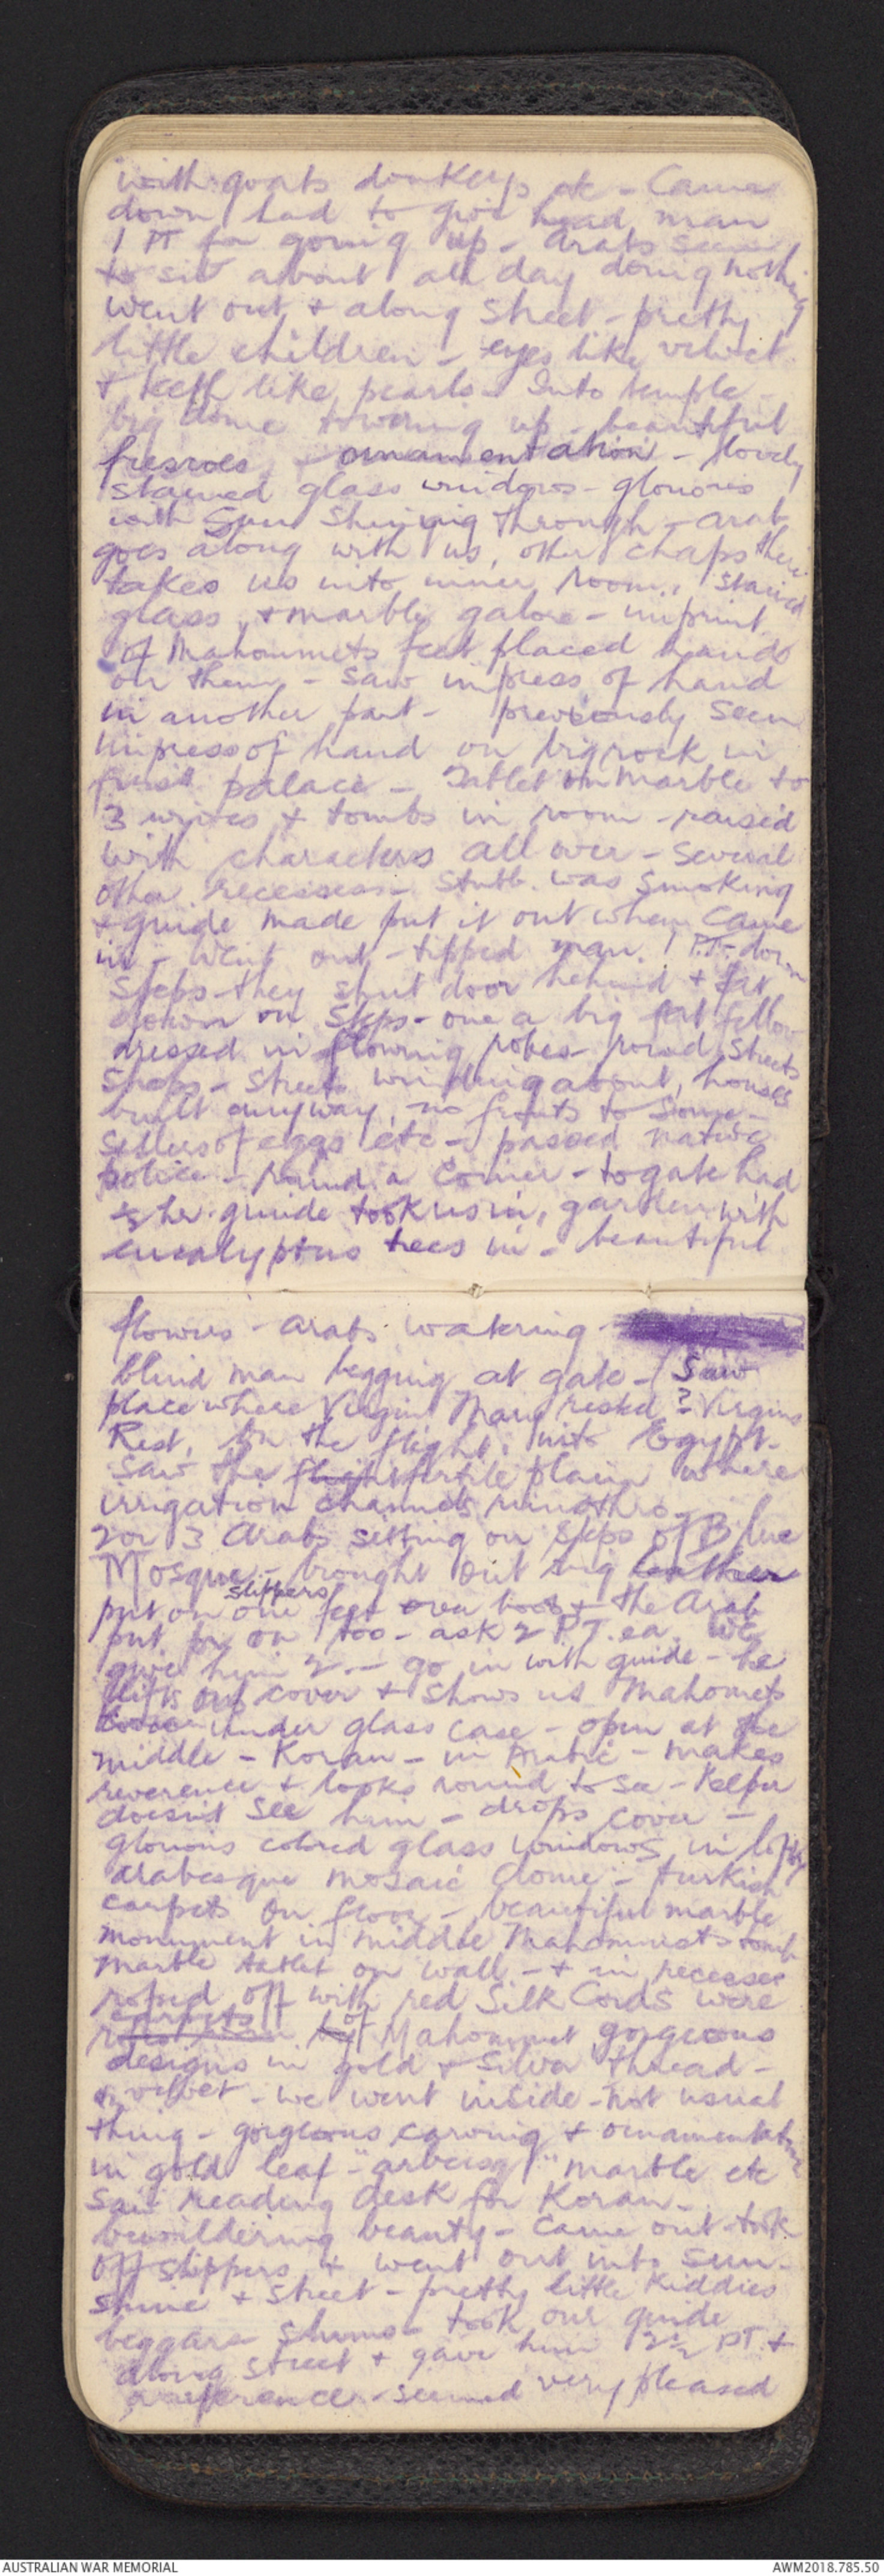 with goats donkeys etc - Came
down had to give head man
1 PT for going up - Arabs seem
to sit about all day doing nothing
Went out + along Street - pretty
little children - eyes like velvet
+ teeth like pearls - Into temple -
big dome towering up - beautiful
frescoes - ornamentation - lovely
stained glass windows - glorious
with Sun Shining through - arab
goes along with us, other chaps there
takes us into inner room, stained
glass, + marble galore - imprint
of Mahommets feet placed hands
on them - saw impress of hand
in another part - previously seen
impress of hand on big rock in
first palace - Tablet on marble to
3 wives + tombs in room - raised
with characters all over - several
other recesses - Stubb. was Smoking
+ guide made put it out when came
in - Went out - tipped man 1 PT - down
Steps - they shut door behind + sat
down on Steps - one a big fat fellow
dressed in flowing robes - round Streets
Shops - Streets winding about, houses
built anyway, no fronts to some -
Sellers of eggs etc - passed native
police - round a Corner - to gate had
guide took us in, garden with
eucalyptus trees in - beautiful
flowers - arabs watering -
blind man begging at gate - (Saw
place where Virgin Mary rested ? Virgins
Rest, on the flight, into Egypt -
Saw the flight fertile plain where
irrigation channels run thro -
2 or 3 Arabs sitting on steps of Blue
Mosque - brought out big leather
slippers
put on our feet over boots + the Arab
put on too - ask 2 PT. ea. We
give him 2 - go in with guide - he
lifts up cover + shows us Mahomets
under glass case - open at the
middle - Koran - in Arabic - makes
reverence + looks round to see - Keeper
doesnt see him - drops cover -
glorious colored glass windows in lofty
arabesque mosaic dome - turkish
carpets on floor - beautiful marble
monument in middle Mahommets tomb
marble tablet on wall - + in recesses
roped off with red Silk Cords were
carpets of Mahommet gorgeous
designs in gold + silver thread -
velvet - we went inside - not usual
thing - gorgeous carving + ornamentation
in gold leaf - "arbesq" marble etc
Saw reading desk for Koran -
bewildering beauty - came out took
off slippers + went out into sun-
shine + Street - pretty little Kiddies
beggars slums - took our guide
along street + gave him 2½ PT. +
a reference - seemed very pleased
AUSTRALIAN WAR MEMORIAL
AWM2018.785.50